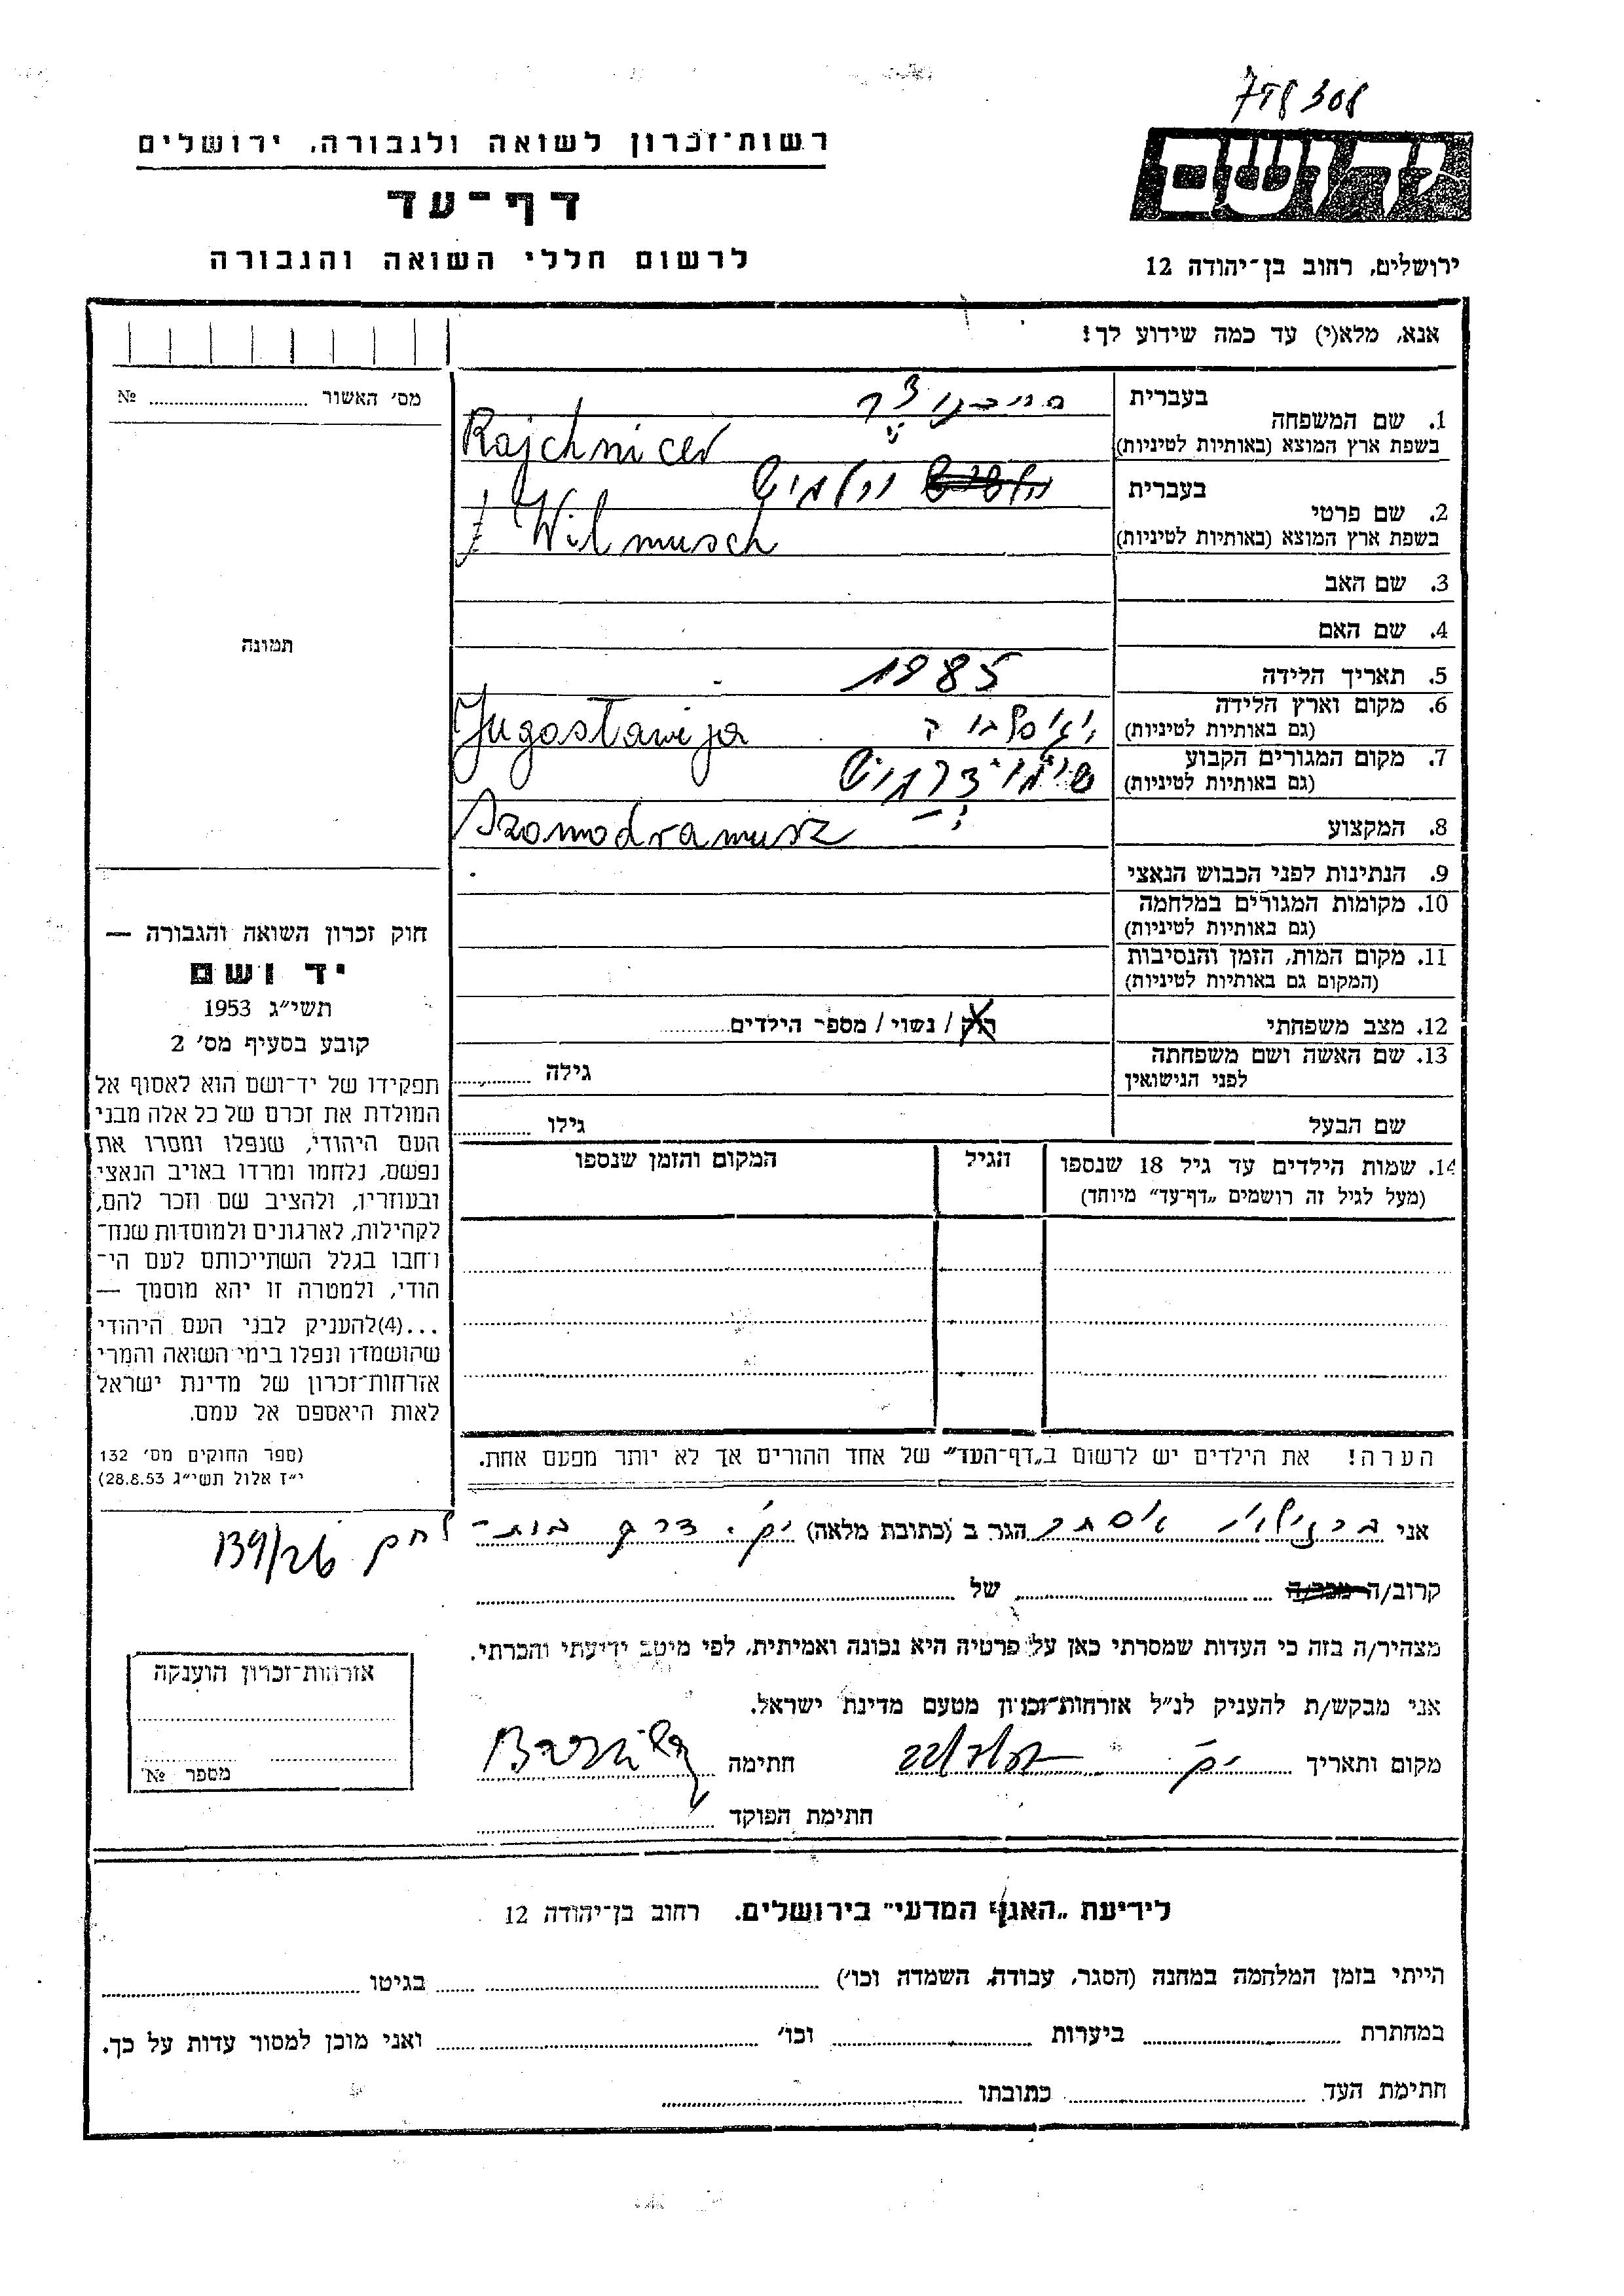 798308
רשות־זכרון לשואה ולגבורה, ירושלים
דף־עד
לרשום חללי השואה והגבורה
יד ושם
ירושלים, רחוב בן־יהודה 12
אנא, מלא(י) עד כמה שידוע לך!
מס׳ האשור ........ №
1. שם המשפחה
בעברית
בשפת ארץ המוצא (באותיות לטיניות)
Rajchnicer
2. שם פרטי
בעברית
בשפת ארץ המוצא (באותיות לטיניות)
Wilmusch
3. שם האב
4. שם האם
תמונה
5. תאריך הלידה 1985
6. מקום וארץ הלידה
(גם באותיות לטיניות)
Jugoslawija
7. מקום המגורים הקבוע
(גם באותיות לטיניות)
Szomodramusz
8. המקצוע
9. הנתינות לפני הכבוש הנאצי
10. מקומות המגורים במלחמה
(גם באותיות לטיניות)
11. מקום המות, הזמן והנסיבות
(המקום גם באותיות לטיניות)
12. מצב משפחתי רווק / נשוי / מספר הילדים
13. שם האשה ושם משפחתה
לפני הנישואין
גילה
שם הבעל גילו
14. שמות הילדים עד גיל 18 שנספו
(מעל לגיל זה רושמים „דף־עד” מיוחד)
הגיל
המקום והזמן שנספו
הערה! את הילדים יש לרשום ב„דף־העד” של אחד ההורים אך לא יותר מפעם אחת.
חוק זכרון השואה והגבורה —
יד ושם
תשי״ג 1953
קובע בסעיף מס׳ 2
תפקידו של יד־ושם הוא לאסוף אל
המולדת את זכרם של כל אלה מבני
העם היהודי, שנפלו ומסרו את
נפשם, נלחמו ומרדו באויב הנאצי
ובעוזריו, ולהציב שם וזכר להם,
לקהילות, לארגונים ולמוסדות שנח־
רחבו בגלל השתייכותם לעם הי־
הודי, ולמטרה זו יהא מוסמך —
...(4)להעניק לבני העם היהודי
שהושמדו ונפלו בימי השואה והמרי
אזרחות־זכרון של מדינת ישראל
לאות היאספם אל עמם.
(ספר החוקים מס׳ 132
י״ז אלול תשי״ג 28.8.53)
אני ברזילי אסתר הגר ב (כתובת מלאה) ים. דרך בית־לחם 139/26
קרוב/ה מכר/ה של
מצהיר/ה בזה כי העדות שמסרתי כאן על פרטיה היא נכונה ואמיתית, לפי מיטב ידיעתי והכרתי.
אני מבקש/ת להעניק לנ״ל אזרחות־זכרון מטעם מדינת ישראל.
מקום ותאריך חתימה
חתימת הפוקד
אזרחות־זכרון הוענקה
מספר №
לידיעת „האגף המדעי” בירושלים. רחוב בן־יהודה 12
הייתי בזמן המלחמה במחנה (הסגר, עבודה, השמדה וכו׳) בגיטו
במחתרת ביערות וכו׳ ואני מוכן למסור עדות על כך.
חתימת העד כתובתו